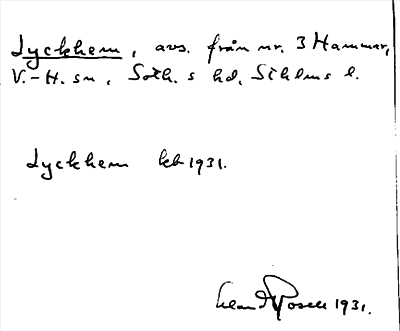 Lyckhem, avs. från nr. 3 Hammar,
V.-H. sn, Soth. s hd, Sthlms l.
Lyckhem kb 1931.
Rosell 1931.